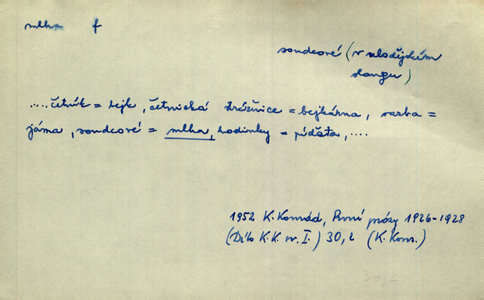 mlha f
soudcové (v zlodějském
slangu)
....četník = hejk, četnická strážnice = hejkárna, vazba =
jáma, soudcové = mlha, hodinky = píďata, ....
1952 K. Konrád, První prózy 1926-1928
(Dílo K. K. sv. I.) 30,2 (K. Kons.)